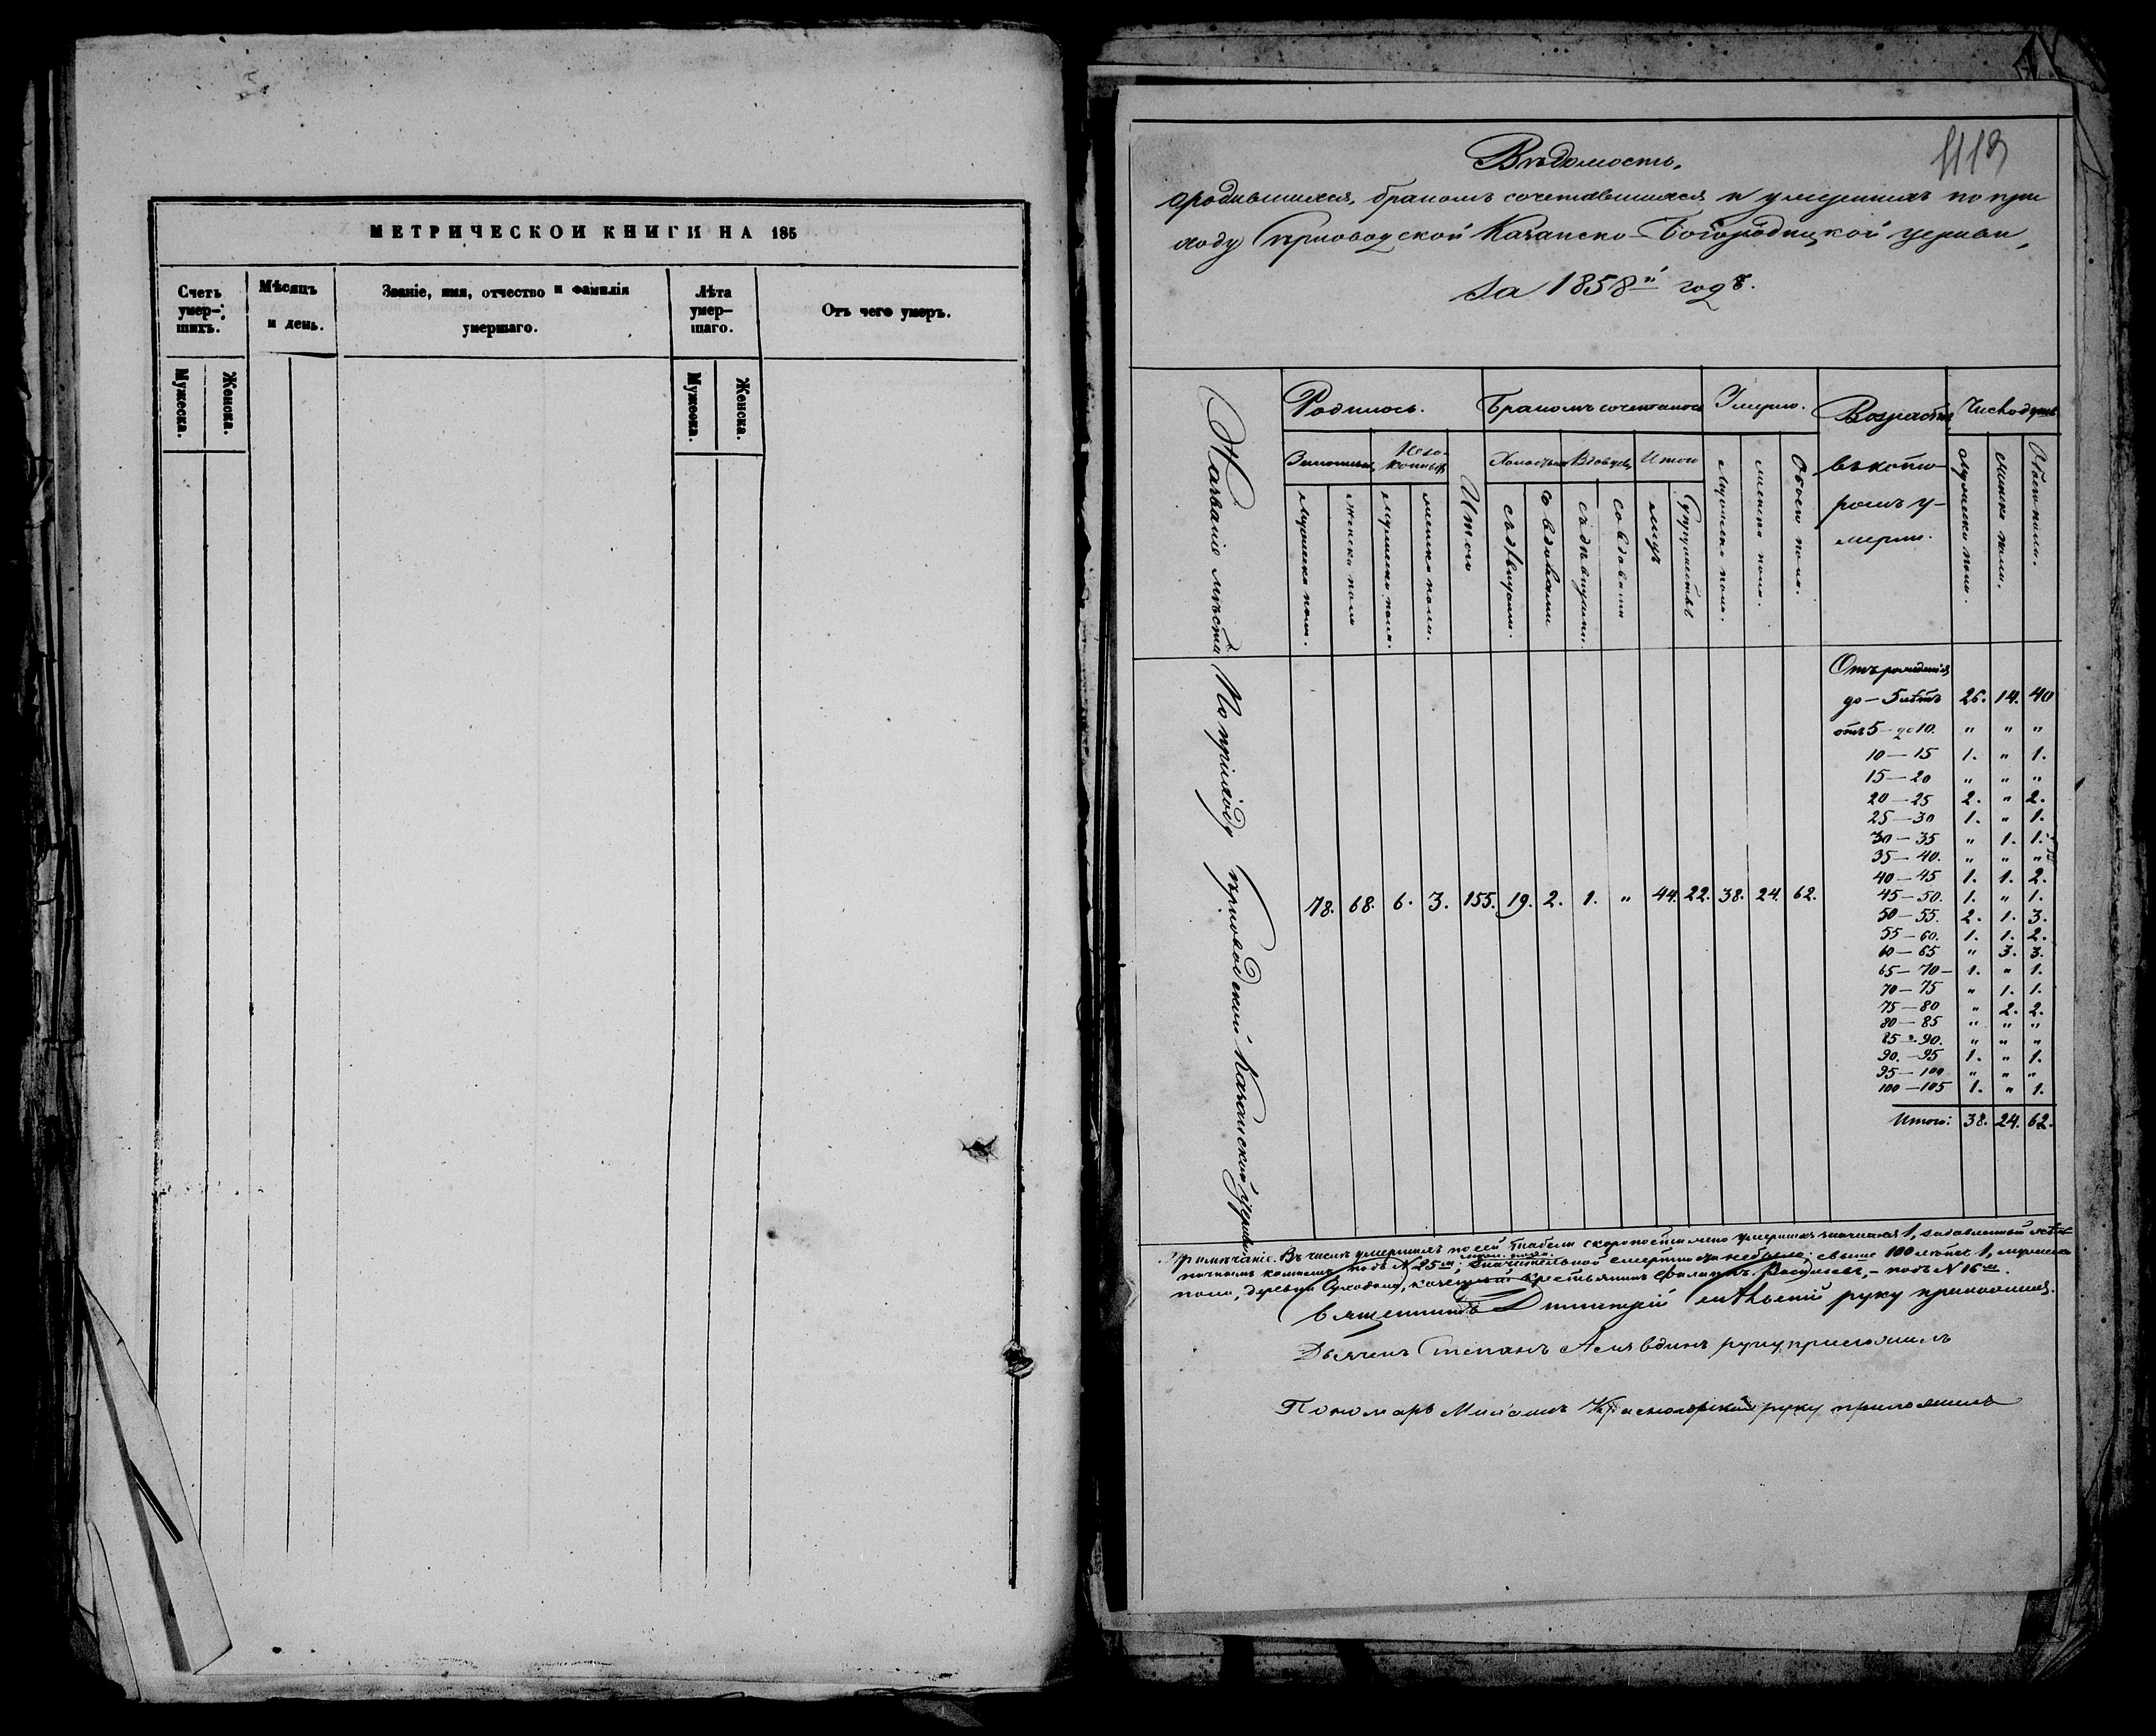 МЕТРИЧЕСКОЙ КНИГИ НА 185
Счетъ умер-шихъ.
Мѣсяцъ и день.
Званіе, имя, отчество и фамилія умершаго.
Лѣта умер-шаго.
Отъ чего умеръ.
Мужеска.
Женска.
Мужеска.
Женска.
1113
Вѣдомость,
о родившихся, бракомъ сочетавшихся и умершихъ по при
ходу Казанско-Богородицкой церкви,
За 1858й годъ.
Названіе мѣста
Родилось.
Бракомъ сочеталось
Умерло.
Возрастъ,
Число душъ
Законныхъ
Незаконныхъ
Итого
Холостыхъ
Вдовцевъ
Итого
въ кото-
ромъ у-
мерли.
Мужеска пола.
Женска пола
Мужеска пола.
Женска пола.
съ дѣвицами.
со вдовами
съ дѣвицами.
со вдовами
лицъ
Супружествъ
Мужеска пола.
Женска пола.
Обоего пола.
Мужеска пола.
Женска пола.
Обоего пола.
По приходу Казанской церкви
78. 68. 6. 3. 155. 19. 2. 1. " 44. 22. 38. 24. 62.
Отъ рожденія
до — 5 лѣтъ 26. 14. 40
отъ 5 — до 10. " " "
10 — 15 1. " 1.
15 — 20 " " "
20 — 25 2. " 2.
25 — 30 1. " 1.
30 — 35 " 1. 1.
35 — 40. " " "
40 — 45 1. 1. 2.
45 — 50. 1. " 1.
50 — 55. 2. 1. 3.
55 — 60. 1. 1. 2.
60 — 65 " 3. 3.
65 — 70 — 1. " 1.
70 — 75 " 1. 1.
75 — 80 " 2. 2.
80 — 85 " " "
85 — 90. " " "
90. — 95 1. " 1.
95 — 100 " " "
100 — 105 1. " 1.
Итого: 38. 24. 62.
Примѣчаніе. Въ числѣ умершихъ по сей табели скоропостижно умершихъ значится 1,
подъ N 25м; значительной смертности не было; свыше 100 лѣтъ 1, мужеска
пола, деревни крестьянинъ Васильевъ, — подъ N 16м.
Священникъ Димитрій руку приложилъ.
Дьячекъ Степанъ руку приложилъ
Пономарь Михаилъ Красногорскій руку приложилъ